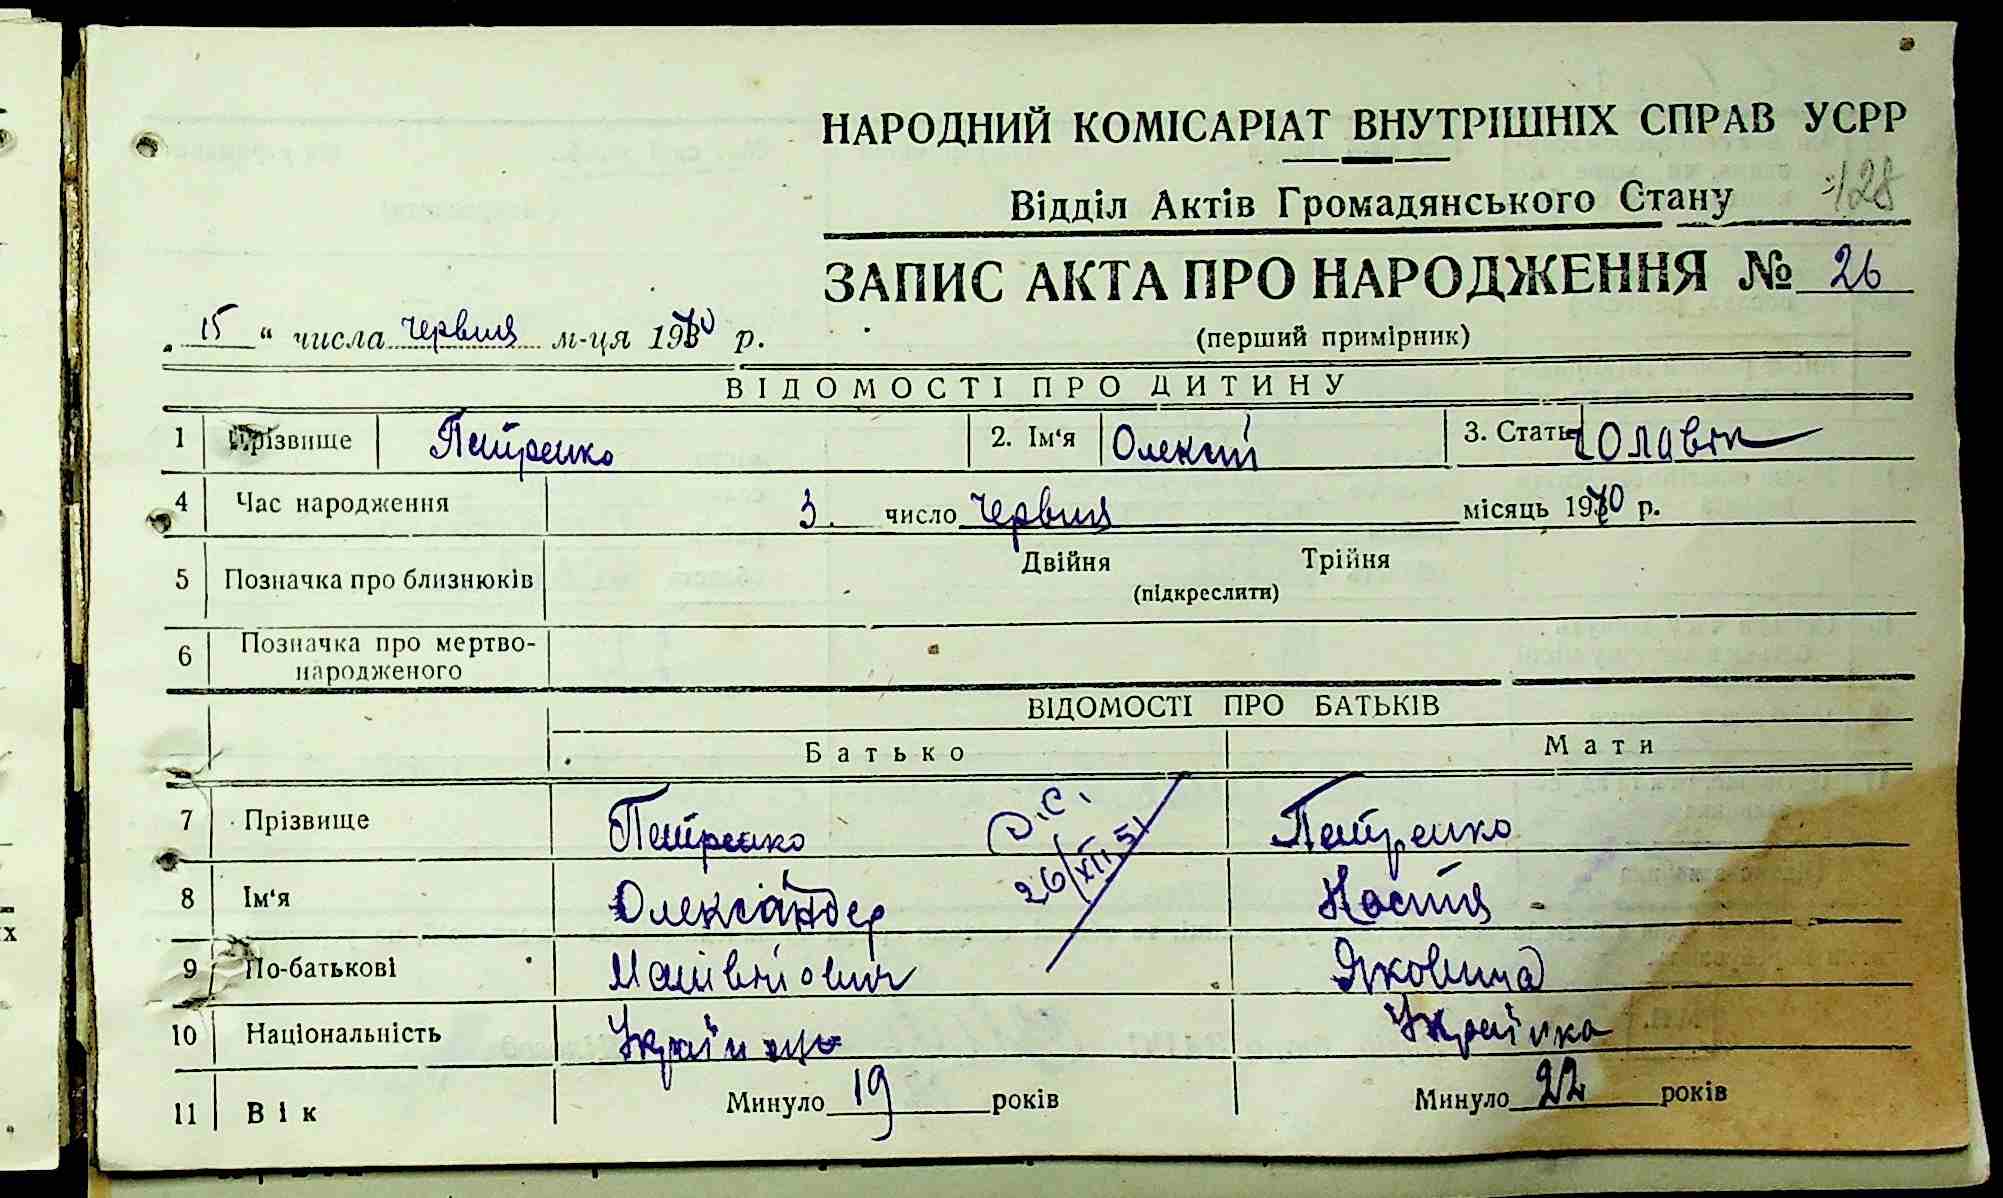 НАРОДНИЙ КОМІСАРІАТ ВНУТРІШНІХ СПРАВ УСРР
Відділ Актів Громадянського Стану 128
ЗАПИС АКТА ПРО НАРОДЖЕННЯ № 26
(перший примірник)
„ 15 “ числа червня м-ця 19 р.
ВІДОМОСТІ ПРО ДИТИНУ
1 Прізвище Петренко 2. Ім‘я Олексій 3. Стать чоловіч
4 Час народження 3 число червня місяць 19 р.
5 Позначка про близнюків Двійня Трійня
(підкреслити)
6 Позначка про мертво-
народженого
ВІДОМОСТІ ПРО БАТЬКІВ
Батько Мати
7 Прізвище Петренко Петренко
8 Ім‘я Олександер Настя
26/XII 51
9 По-батькові Матвійович Яковина
10 Національність Українець Українка
11 Вік Минуло 19 років Минуло 22 років